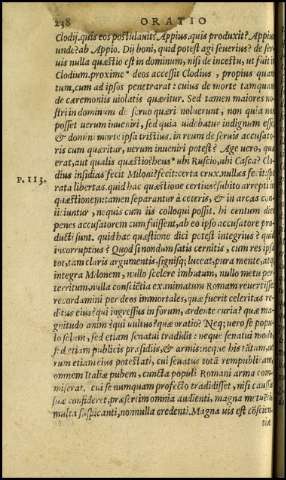 248 ORATIO
Clodij. quis eos postulauit? Appius. quis produxit? Appius.
unde? ab Appio. Dij boni, quid potest agi seuerius? de ser
uis nulla quæstio est in dominum, nisi de incestu, ut fuit in
Clodium. proxime deos accessit Clodius, propius quàm
tum, cum ad ipsos penetrarat: cuius de morte tamquam
de cæremoniis uiolatis quæritur. Sed tamen maiores no
stri in dominum de seruo quæri noluerunt, non quia non
posset uerum inueniri, sed quia uidebatur indignum esse,
& domini morte ipsa tristius, in reum de seruis accusato
ris cum quæritur, uerum inueniri potest? Age uero, quæ
erat, aut qualis quæstio? heus ubi Ruscio, ubi Casca? Clo
dius insidias fecit Miloni? fecit: certa crux. nullas fecit: spe
P. 113. rata libertas. quid hac quæstione certius? subito arrepti in
quæstionem: tamen separantur à ceteris, & in arcas con
iiciuntur, nequis cum iis colloqui possit. hi centum dies
penes accusatorem cum fuissent, ab eo ipso accusatore pro
ducti sunt. quid hac quæstione dici potest integrius? quid
incorruptius? Quod si nondum satis cernitis, cum res ipsa
tot, tam claris argumentis, signisq; luceat, pura mente, atq;
integra Milonem, nullo scelere imbutum, nullo metu per
territum, nulla conscientia exanimatum Romam reuertisse:
recordamini per deos immortales, quæ fuerit celeritas re
ditus eius? qui ingressus in forum, ardente curia? quæ ma
gnitudo animi? qui uultus? quæ oratio? Neq; uero se popu
lo solum, sed etiam senatui tradidit: neque senatui modo,
sed etiam publicis præsidiis, & armis: neque his tantum, ue
rum etiam eius potestati, cui senatus totam rempublicam,
omnem Italiæ pubem, cuncta populi Romani arma com
miserat. cui se numquam profecto tradidisset, nisi causæ
suæ confideret, præsertim omnia audienti, magna metuenti,
multa suspicanti, nonnulla credenti. Magna uis est conscien
tiæ